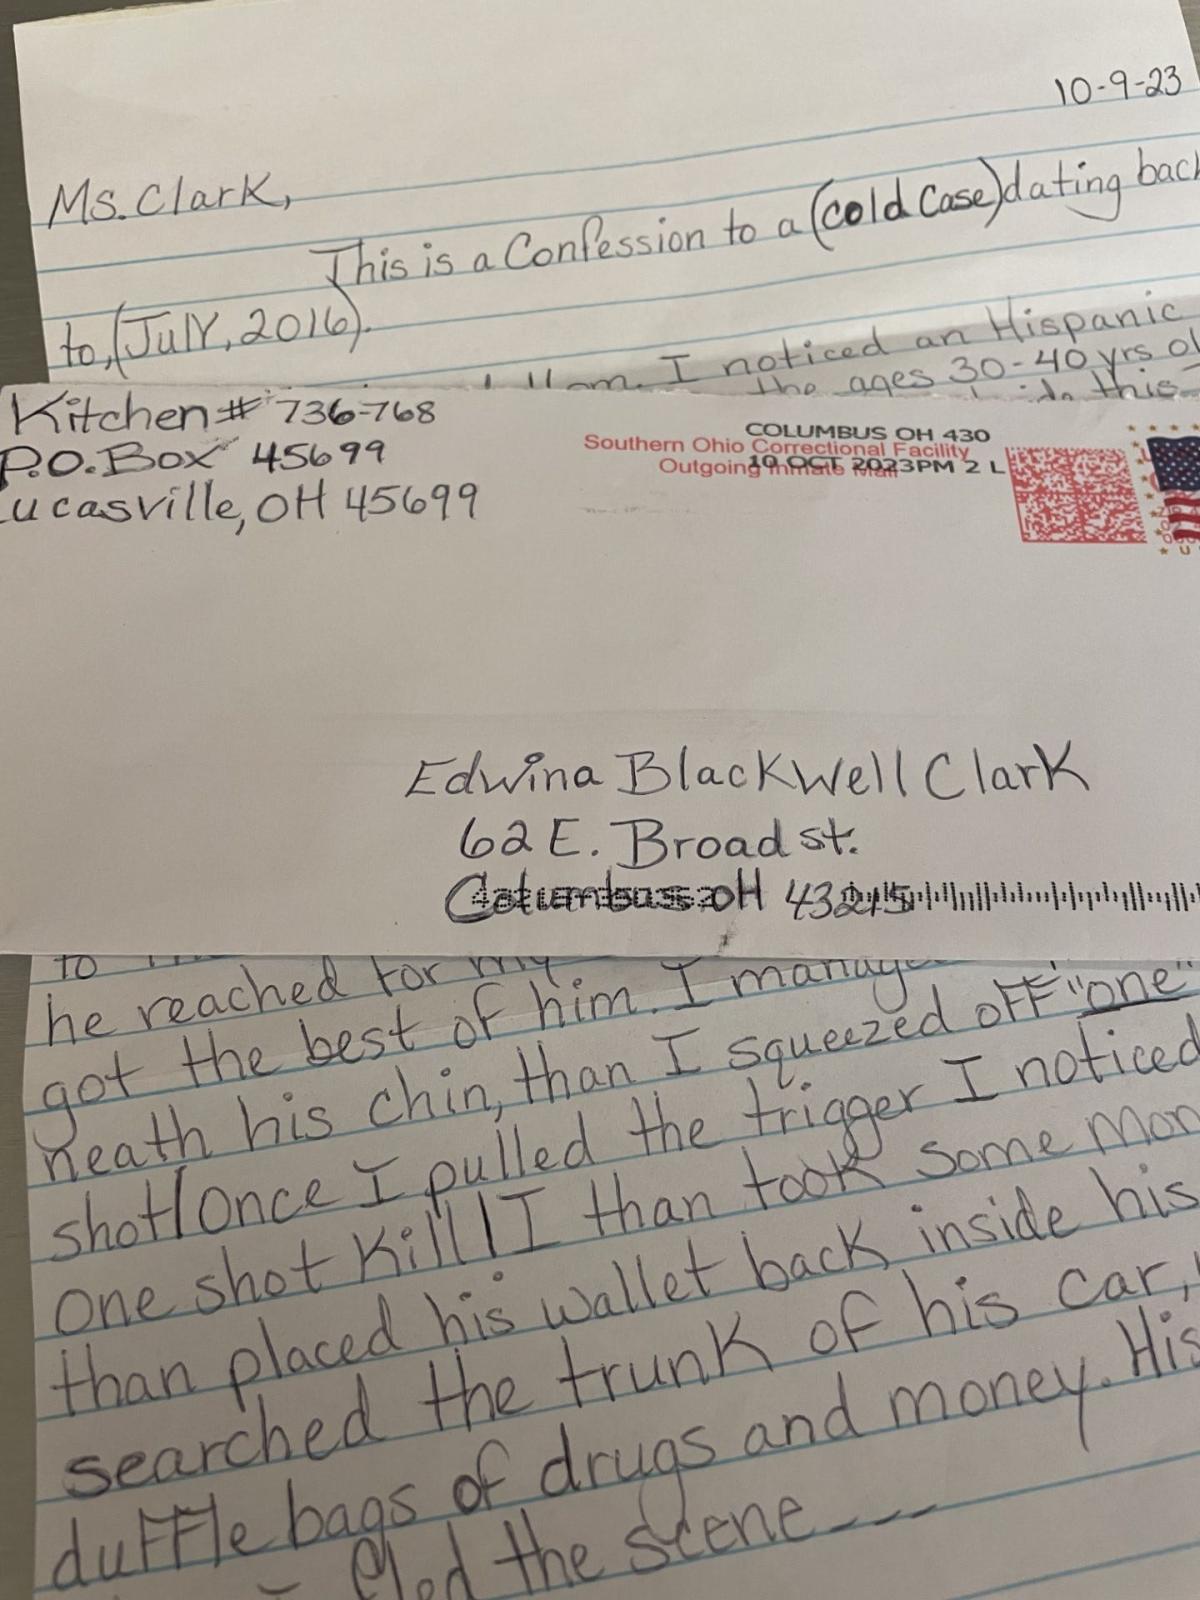 10-9-23
Ms. Clark,
This is a Confession to a (cold Case) dating back
to, (July, 2016).
I noticed an Hispanic
the ages 30-40 yrs
this
Kitchen# 736-768
P.O. Box 45699
Lucasville, OH 45699
COLUMBUS OH 430
Southern Ohio Correctional Facility
Outgoing Inmate Mail
10 OCT 2023 PM 2 L
Edwina Blackwell Clark
62 E. Broad st.
Columbus OH 43215
to
he reached for my
got the best of him. I
neath his chin, than I squeezed off "one"
shot! Once I pulled the trigger I noticed
one shot Kill! I than took some
than placed his wallet back inside his
searched the trunk of his car,
duffle bags of drugs and money. His
fled the scene---